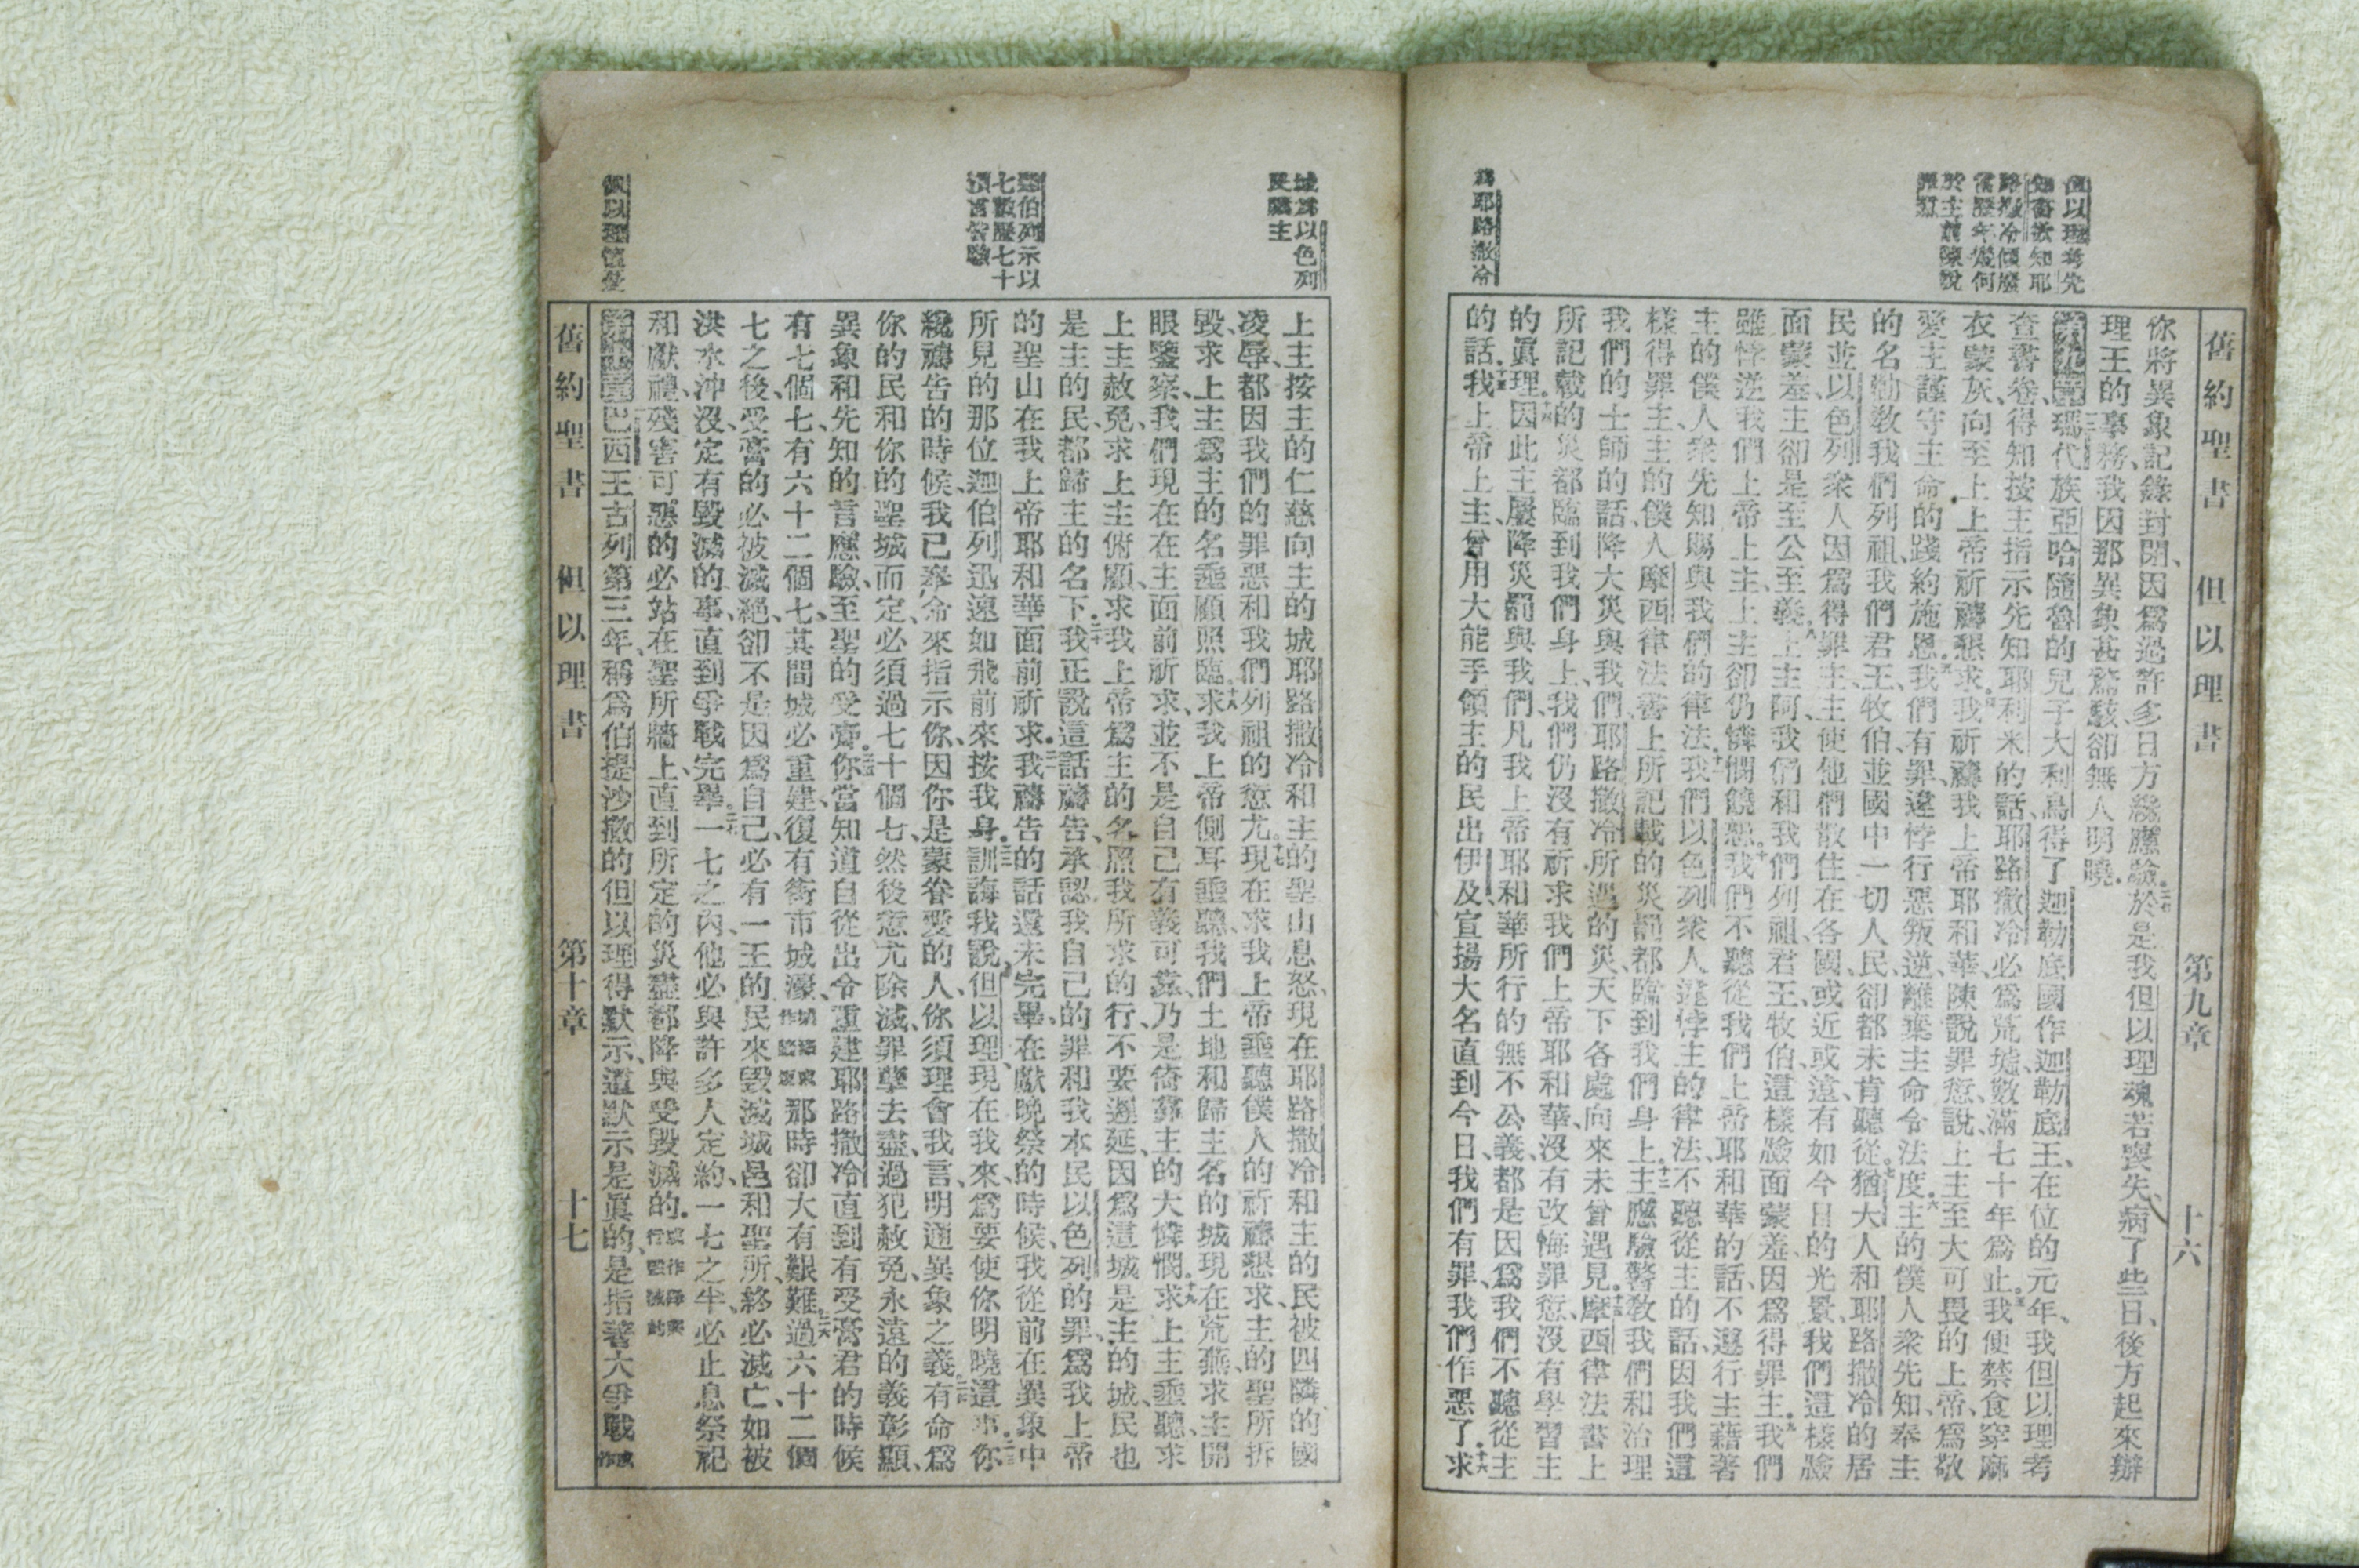 舊約聖書 但以理書 第九章 十六
但以理考先
知書欲知耶
路撒冷傾廢
當歷年幾何
於主前陳說
罪愆
爲耶路撒冷
你將異象記錄封閉、因爲過許多日方纔應驗。二七於是我但以理魂若喪失、病了些日、後方起來辦
理王的事務、我因那異象甚驚駭、卻無人明曉。
第九章 瑪代族亞哈隨魯的兒子大利烏得了迦勒底國作迦勒底王、二在位的元年、我但以理考
查書卷、得知按主指示先知耶利米的話、耶路撒冷必爲荒墟、數滿七十年爲止。三我便禁食穿麻
衣蒙灰、向至上上帝祈禱懇求。四我祈禱我上帝耶和華、陳說罪愆、說、上主至大可畏的上帝、爲敬
愛主謹守主命的踐約施恩。五我們有罪、違悖行惡叛逆、離棄主命令法度。六主的僕人衆先知、奉主
的名勸敎我們列祖、我們君王、牧伯、並國中一切人民、卻都未肯聽從。七猶大人和耶路撒冷的居
民並以色列衆人因爲得罪主、主使他們散住在各國、或近或遠、有如今日的光景、我們這樣臉
面蒙羞、主卻是至公至義。八上主阿、我們和我們列祖、君王、牧伯、這樣臉面蒙羞、因爲得罪主。九我們
雖悖逆我們上帝上主、上主卻仍憐憫饒恕。十我們不聽從我們上帝耶和華的話、不遵行主藉著
主的僕人、衆先知賜與我們的律法。十一我們以色列衆人、違悖主的律法不聽從主的話、因我們這
樣得罪主、主的僕人摩西律法書上所記載的災罰都臨到我們身上。十二主應驗警敎我們和治理
我們的士師的話、降大災與我們、耶路撒冷所遇的災、天下各處向來未曾遇見。十三摩西律法書上
所記載的災都臨到我們身上、我們仍沒有祈求我們上帝耶和華、沒有改悔罪愆、沒有學習主
的眞理。十四因此主屢降災罰與我們、凡我上帝耶和華所行的無不公義、都是因爲我們不聽從主
的話。十五我上帝上主、曾用大能手領主的民出伊及宣揚大名直到今日、我們有罪、我們作惡了。十六求
城爲以色列
民籲主
迦伯列示以
七數歷七十
預言皆驗
但以理憶受
上主按主的仁慈向主的城耶路撒冷和主的聖山息怒、現在耶路撒冷和主的民被四隣的國
凌辱、都因我們的罪惡和我們列祖的愆尤。十七現在求我上帝垂聽僕人的祈禱懇求、主的聖所拆
毀、求上主爲主的名垂顧照臨。十八求我上帝側耳垂聽、我們土地和歸主名的城現在荒蕪、求主開
眼鑒察、我們現在在主面前祈求、並不是自己有義可靠、乃是倚靠主的大憐憫。十九求上主垂聽、求
上主赦免、求上主俯顧、求我上帝爲主的名照我所求的行、不要遲延、因爲這城是主的城、民也
是主的民、都歸主的名下。二十我正說這話禱告、承認我自己的罪和我本民以色列的罪、爲我上帝
的聖山在我上帝耶和華面前祈求。二一我禱告的話還未完畢、在獻晚祭的時候、我從前在異象中
所見的那位迦伯列迅速如飛前來按我身。二二訓誨我說、但以理、現在我來、爲要使你明曉這事。二三你
纔禱告的時候、我已奉命來指示你、因你是蒙眷愛的人、你須理會我言、明通異象之義。二四有命爲
你的民和你的聖城而定、必須過七十個七、然後愆尤除滅、罪孽去盡、過犯赦免、永遠的義彰顯、
異象和先知的言應驗、至聖的受膏。二五你當知道自從出令重建耶路撒冷直到有受膏君的時候
有七個七、有六十二個七、其間城必重建、復有街市城濠、那時卻大有艱難。二六過六十二個
七之後、受膏的必被滅絕、卻不是因爲自己、必有一王的民來毀滅城邑和聖所、終必滅亡、如被
洪水沖沒、定有毀滅的事、直到爭戰完畢。二七一七之內、他必與許多人定約、一七之半、必止息祭祀
和獻禮、殘害可惡的必站在聖所牆上、直到所定的災盡都降與受毀滅的。或作降與行毀滅的
第十章 巴西王古列第三年、稱爲伯提沙撒的但以理得默示、這默示是眞的、是指著大爭戰或作
舊約聖書 但以理書 第十章 十七